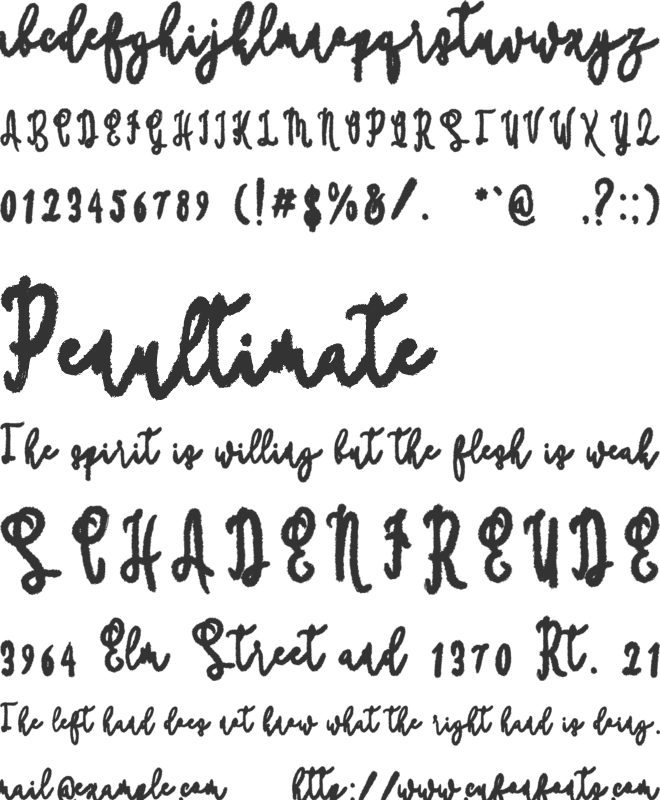 abcdefghijklmnopqrstuvwxyz
ABCDEFGHIJKLMNOPQRSTUVWXYZ
0123456789 (!#$%&/. *`@ ,?:;)
Penultimate
The spirit is willing but the flesh is weak
SCHADENFREUDE
3964 Elm Street and 1370 Rt. 21
The left hand does not know what the right hand is doing.
mail@example.com http://www.cufonfonts.com